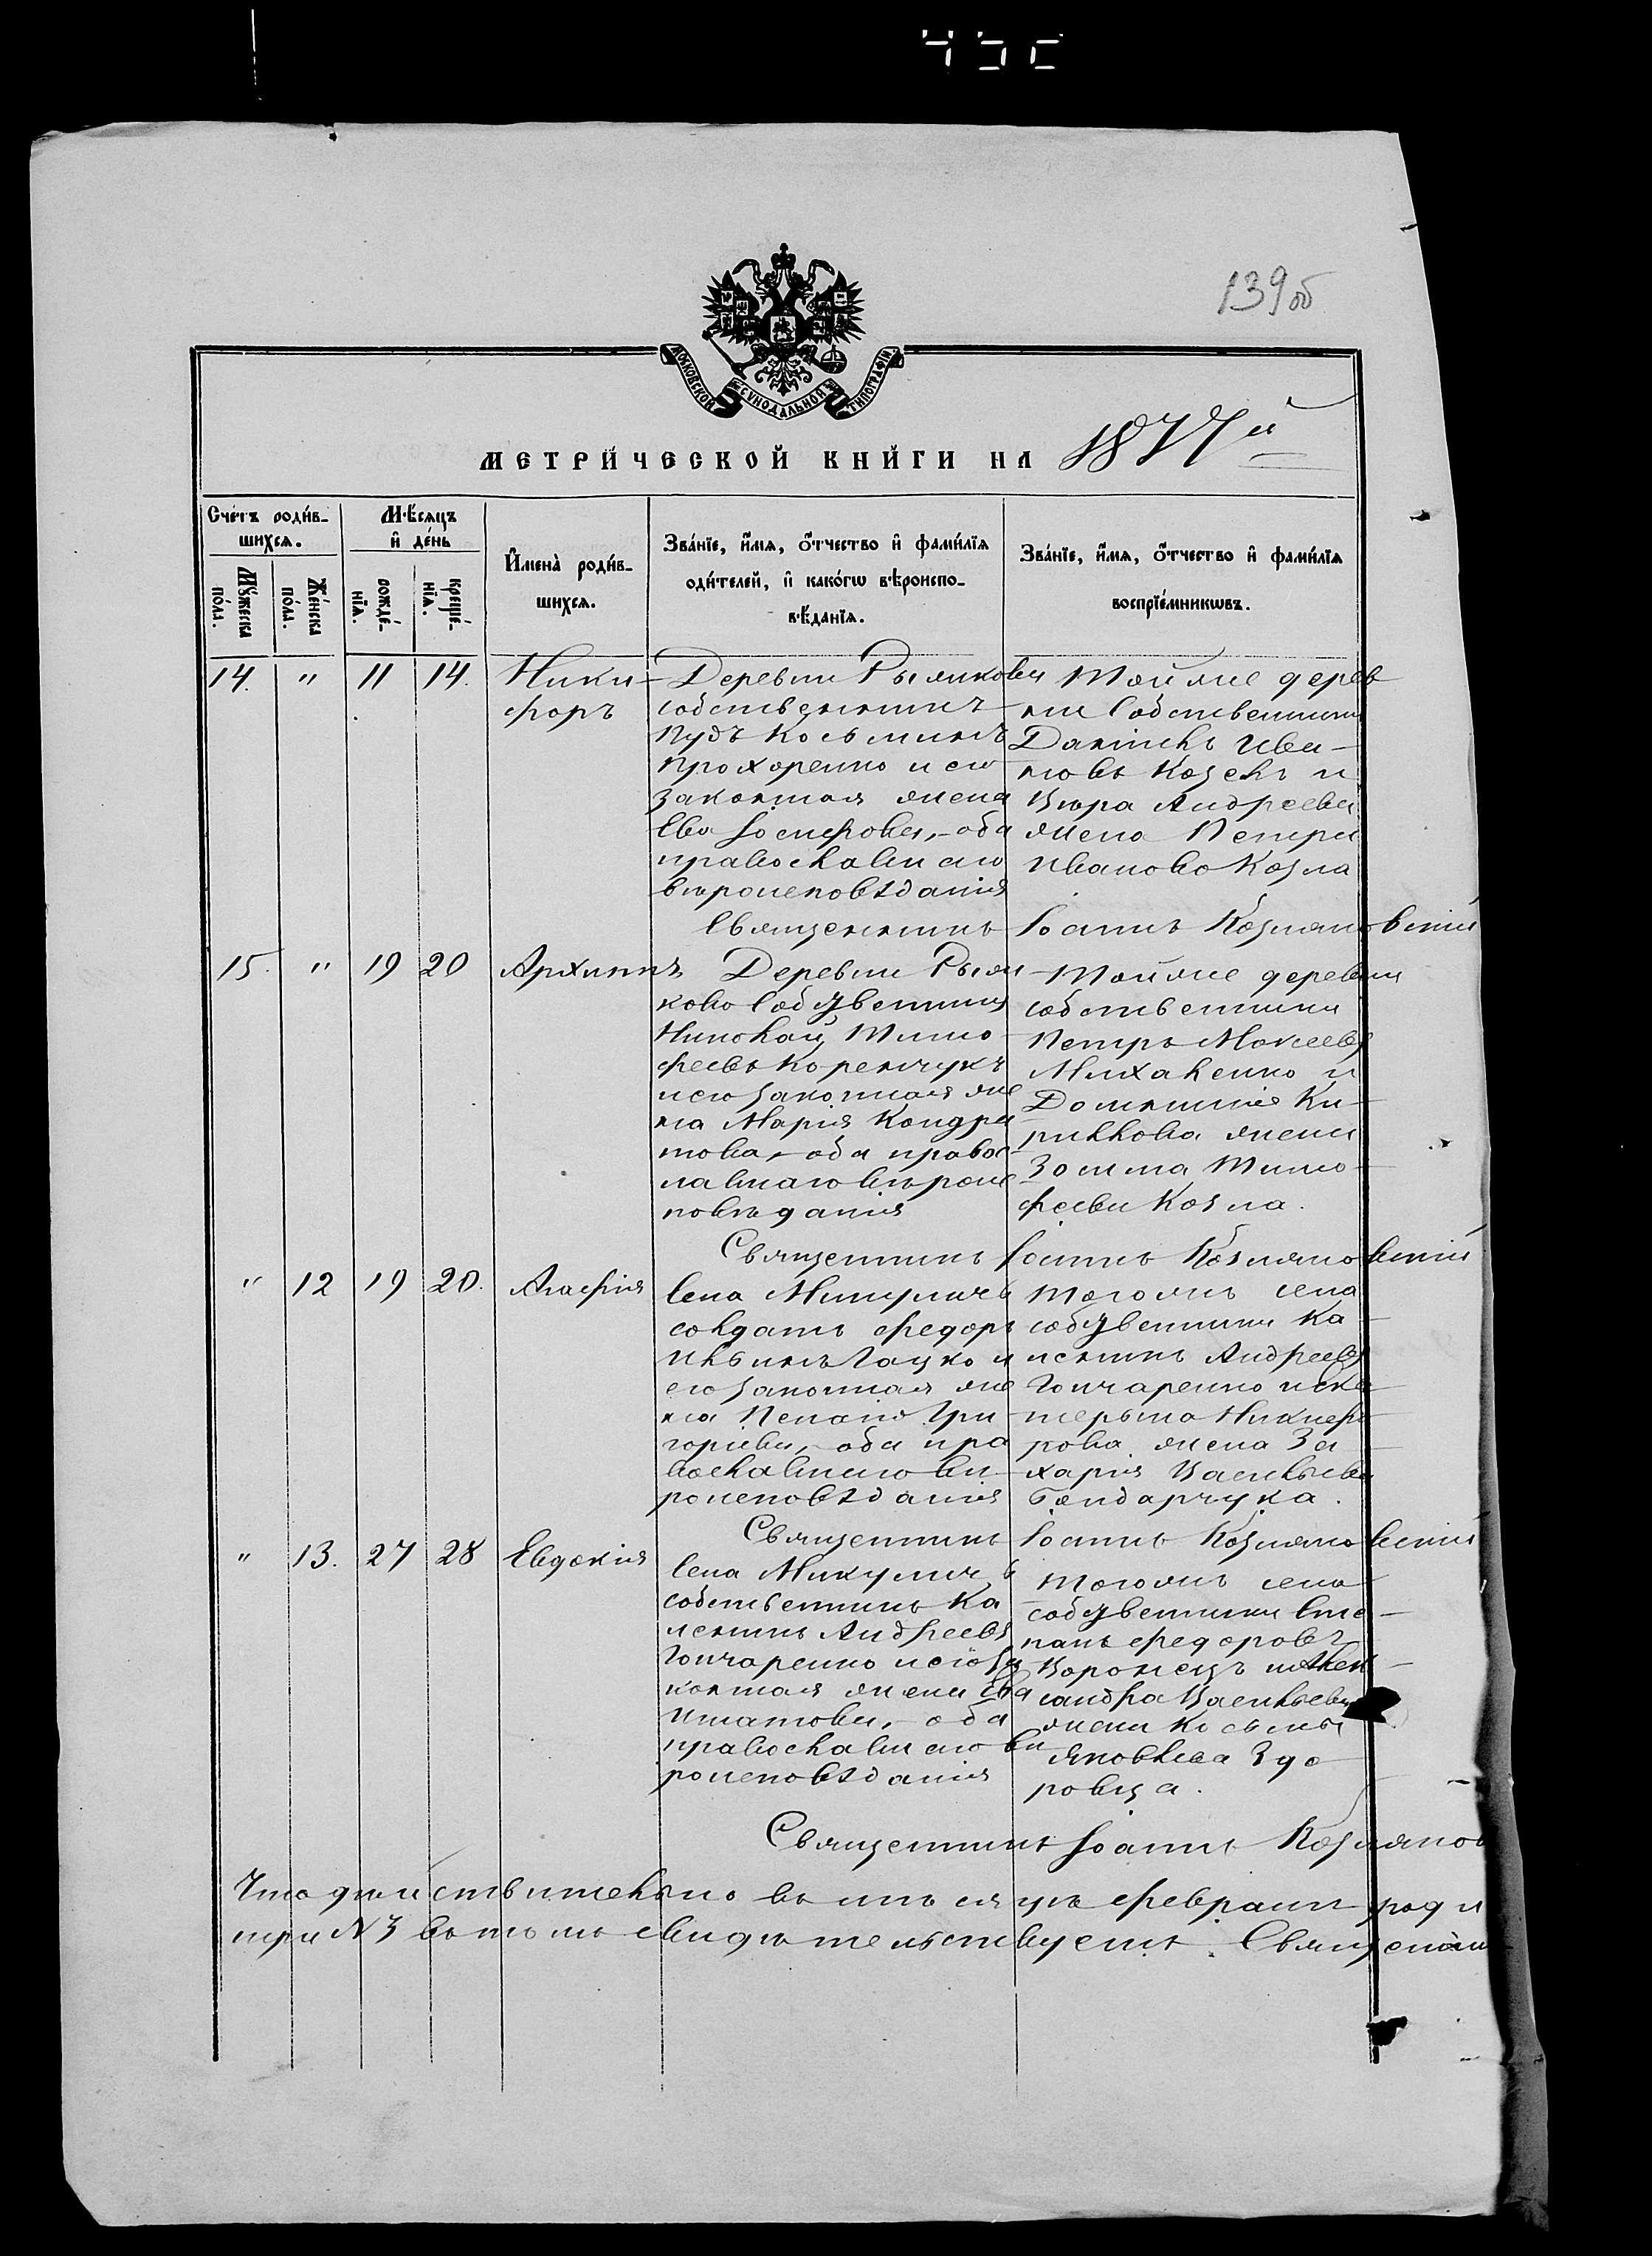 139об
МОСКОВСКОЙ СѴНОДАЛЬНОЙ ТИПОГРАФІИ
МЕТРИ́ЧЕСКОЙ КНИ́ГИ НА 1877й
Сче́тъ роди́в-
шихся.
Мꙋ́жеска
по́ла.
Же́нска
по́ла.
Мѣ́сяцъ
и҆ де́нь
рожде́-
нїѧ.
креще́-
нїѧ.
И҆мена̀ роди́в-
шихся.
Зва́нїе, и҆́мѧ, ѻ҆́тчество и҆ фами́лїѧ
оди́телей, и҆ како́гѡ вѣроиспо-
вѣ́данїѧ.
Зва́нїе, и҆́мѧ, ѻ҆́тчество и҆ фами́лїѧ
воспрїе́мникѡвъ.
14. " 11 14.
Ники-
форъ
Деревни Рыжкова
собственникъ
Козьминъ
Прохоренко и его
законная жена
Ева Іосифова, - оба
православнаго
вѣроисповѣданія
Той же дерев
ни собственники
Даніилъ Ива-
новъ Козелъ и
Андреева
жена Петра
Иванова Козла
Священникъ Іоаннъ
15. " 19 20
Архиппъ
Деревни Рыж
кова собственникъ
Николай Тимо-
феевъ Коренчукъ
и его законная же
на Марія Кондра
това, - оба правос
лавнаго вѣроис
повѣданія
Той же деревни
собственники
Петръ Моисеевъ
Михаленко и
Домникія Ки-
рилова жена
Зосима Тимо-
феева Козла.
Священникъ Іоаннъ
" 12 19 20.
Агафія
Села Микуличъ
солдатъ Федоръ
Ильинъ Гацко и
его законная же
на Пелагія Гри
горіева, - оба пра
вославнаго вѣ
роисповѣданія
Того жъ села
собственники Ка-
лениикъ Андреевъ
Гончаренко и Ека-
терына Никифо-
рова жена За-
харія Васильева
Бондарчука.
Священникъ Іоаннъ
" 13. 27 28
Евдокія
Села Микуличъ
собственникъ Ка
леникъ Андреевъ
Гончаренко и его за
конная жена Ева
Игнатова, - оба
православнаго вѣ
роисповѣданія
Того жъ села
собственники Сте-
панъ Федоровъ
Воронецъ и Алек-
сандра Васильева
жена Косьмы
Яковлева Здо-
ровца.
Священникъ Іоаннъ
Что дѣйствительно въ мѣсяцѣ февралѣ
при N 3 въ томъ свидѣтельствуетъ. Священникъ